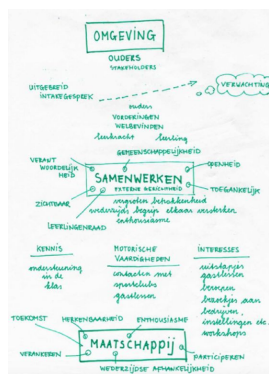 OMGEVING
OUDERS
STAKEHOLDERS
UITGEBREID
INTAKEGESPREK
VERWACHTING
ouders
VORDERINGEN
WELBEVINDEN
leerkracht leerling
GEMEENSCHAPPELIJKHEID
VERANT
WOORDELIJK
HEID
OPENHEID
SAMENWERKEN
EXTERNE GERICHTHEID
TOEGANKELIJK
ZICHTBAAR
vergroten betrokkenheid
wederzijds begrip elkaar versterken
enthousiasme
LEERLINGENRAAD
KENNIS
ondersteuning
in de
klas
MOTORISCHE
VAARDIGHEDEN
contacten met
sportclubs
gastlessen
INTERESSES
uitstapjes
gastlessen
beroepen
bezoekjes aan
bedrijven,
instellingen etc.
workshops
TOEKOMST
HERKENBAARHEID
ENTHOUSIASME
MAATSCHAPPIJ
VERANKEREN
PARTICIPEREN
WEDERZIJDSE AFHANKELIJKHEID